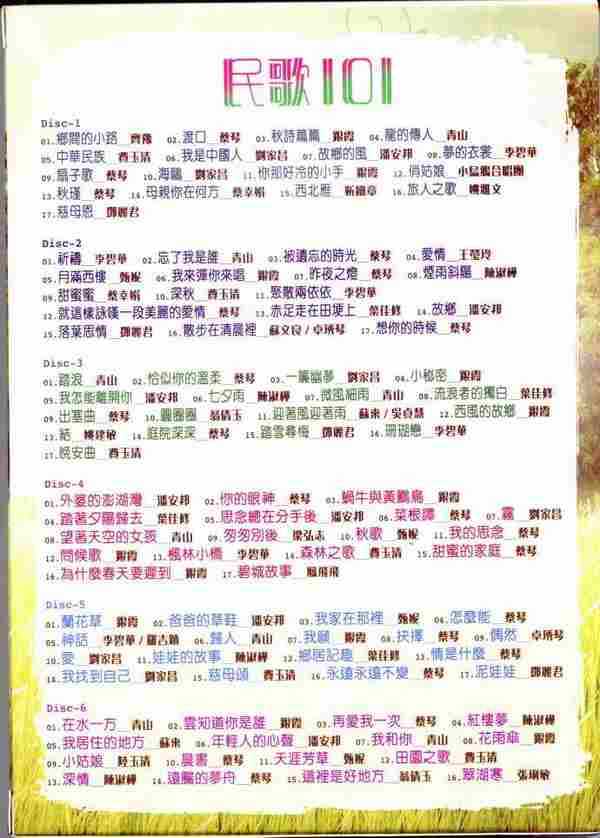 民歌101
Disc-1
01.鄉間的小路__齊豫 02.渡口__蔡琴 03.秋詩篇篇__銀霞 04.龍的傳人__青山
05.中華民族__費玉清 06.我是中國人__劉家昌 07.故鄉的風__潘安邦 08.夢的衣裳__李碧華
09.扇子歌__蔡琴 10.海鷗__劉家昌 11.你那好冷的小手__銀霞 12.俏姑娘__小茑鷊合唱團
13.秋瑾__蔡琴 14.母親你在何方__蔡幸娟 15.西北雁__靳鐵章 16.旅人之歌__姚進文
17.慈母恩__鄧麗君
Disc-2
01.祈禱__李碧華 02.忘了我是誰__青山 03.被遺忘的時光__蔡琴 04.愛情__王瑩玲
05.月滿西樓__甄妮 06.我來彈你來唱__銀霞 07.昨夜之燈__蔡琴 08.煙雨斜陽__陳淑樺
09.甜蜜蜜__蔡幸娟 10.深秋__費玉清 11.聚散兩依依__李碧華
12.就這樣詠嘆一段美麗的愛情__蔡琴 13.赤足走在田埂上__葉佳修 14.故鄉__潘安邦
15.落葉思情__鄧麗君 16.散步在清晨裡__蘇文良/卓琇琴 17.想你的時候__蔡琴
Disc-3
01.踏浪__青山 02.恰似你的溫柔__蔡琴 03.一簾幽夢__劉家昌 04.小秘密__銀霞
05.我怎能離開你__潘安邦 06.七夕雨__陳淑樺 07.微風細雨__青山 08.流浪者的獨白__葉佳修
09.出塞曲__蔡琴 10.圓圈圈__翁倩玉 11.迎著風迎著雨__蘇來/吳貞慧 12.西風的故鄉__銀霞
13.結__姚建敏 14.庭院深深__蔡琴 15.踏雪尋梅__鄧麗君 16.珊瑚戀__李碧華
17.晚安曲__費玉清
Disc-4
01.外婆的澎湖灣__潘安邦 02.你的眼神__蔡琴 03.蝸牛與黃鸝鳥__銀霞
04.踏著夕陽歸去__葉佳修 05.思念總在分手後__潘安邦 06.菜根譚__蔡琴 07.霧__劉家昌
08.望著天空的女孩__青山 09.匆匆別後__梁弘志 10.秋歌__甄妮 11.我的思念__蔡琴
12.問候歌__銀霞 13.楓林小橋__李碧華 14.森林之歌__費玉清 15.甜蜜的家庭__蔡琴
16.為什麼春天要遲到__銀霞 17.碧城故事__鳳飛飛
Disc-5
01.蘭花草__銀霞 02.爸爸的草鞋__潘安邦 03.我家在那裡__甄妮 04.怎麼能__蔡琴
05.神話__李碧華/羅吉鎮 06.歸人__青山 07.我願__銀霞 08.抉擇__蔡琴 09.偶然__卓琇琴
10.愛__劉家昌 11.娃娃的故事__陳淑樺 12.鄉居記趣__葉佳修 13.情是什麼__蔡琴
14.我找到自己__劉家昌 15.慈母頌__費玉清 16.永遠永遠不變__蔡琴 17.泥娃娃__鄧麗君
Disc-6
01.在水一方__青山 02.雲知道你是誰__銀霞 03.再愛我一次__蔡琴 04.紅樓夢__陳淑樺
05.我居住的地方__蘇來 06.年輕人的心聲__潘安邦 07.我和你__青山 08.花雨傘__銀霞
09.小姑娘__陸玉清 10.晨書__蔡琴 11.天涯芳草__甄妮 12.田園之歌__費玉清
13.深情__陳淑樺 14.遠颺的夢舟__蔡琴 15.這裡是好地方__翁倩玉 16.翠湖寒__張琍敏